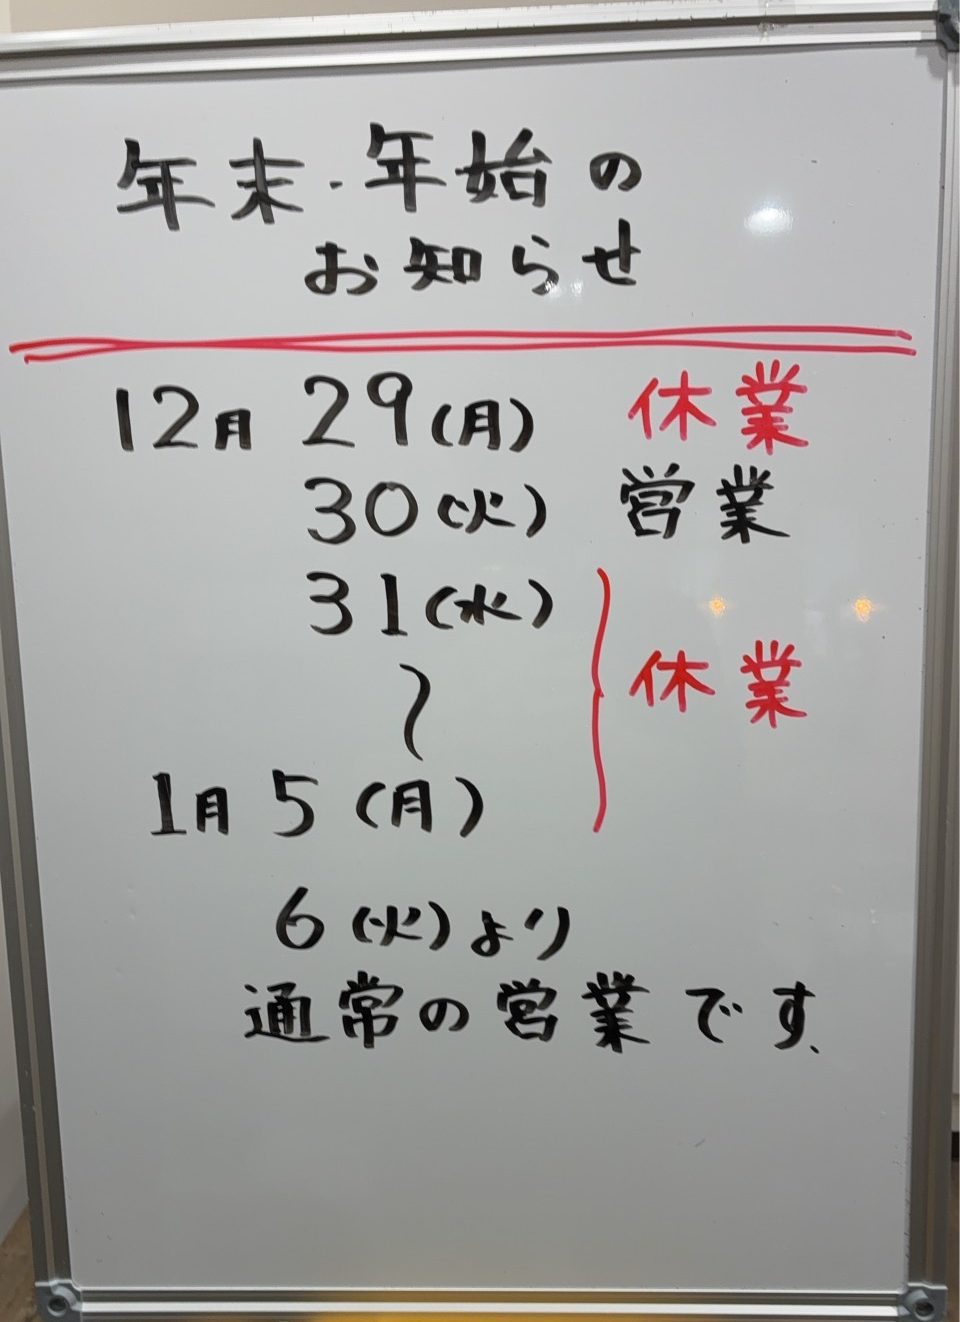 年末・年始の
お知らせ
12月 29(月) 休業
30(火) 営業
31(水)
〜 休業
1月 5(月)
6(火)より
通常の営業です、